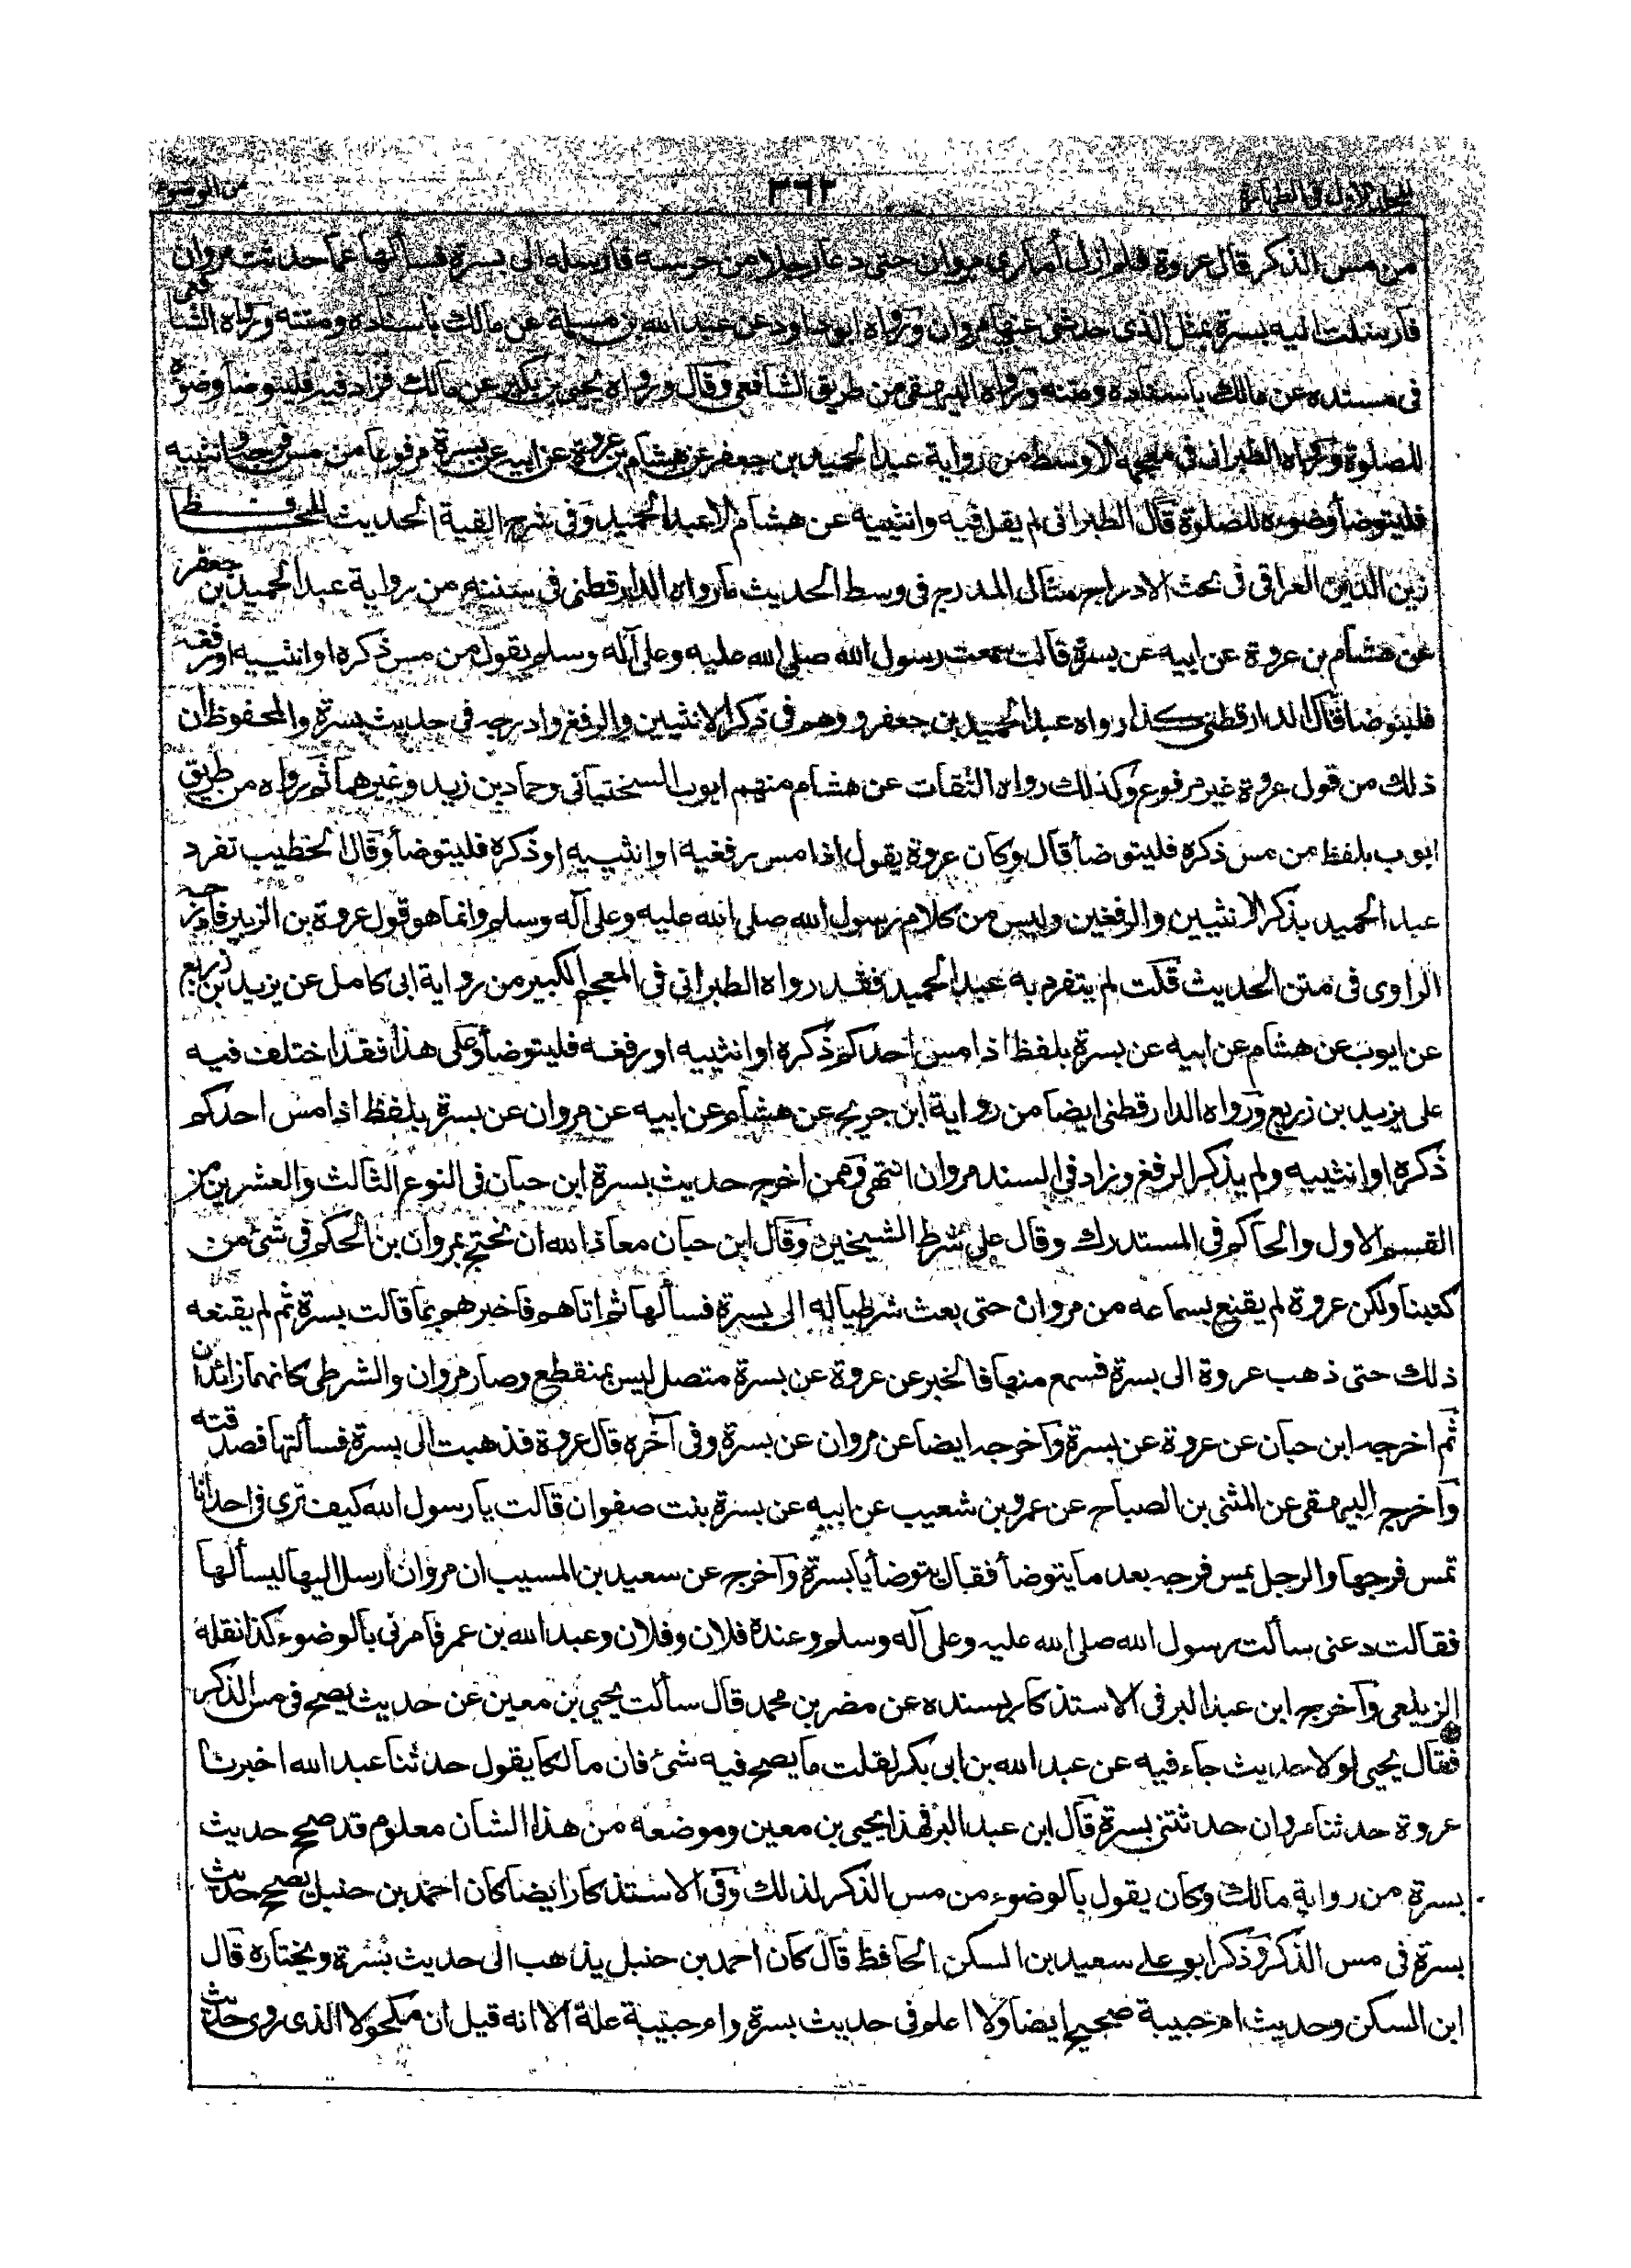 ٣٦٢
من مس الذكر قال عروة فلم ازل أمارى مروان حتى دعا رجلا من حرسه فارسله الى بسرة فسألها عما حدثت مروان
فارسلت اليه بسرة بمثل الذى حدثنى عنها مروان ورواه ابوداود عن عبد الله بن مسلمة عن مالك باسناده ومتنه ورواه الشافعى
فى مسنده عن مالك باسناده ومتنه ورواه البيهقى من طريق الشافعى وقال ورواه يحيى بن بكير عن مالك فزاد فيه فليتوضأ وضوءه
للصلوة ورواه الطبرانى فى معجمه الاوسط من رواية عبد الحميد بن جعفر عن هشام بن عروة عن ابيه عن بسرة مرفوعا من مس فرجه وانثييه
فليتوضأ وضوءه للصلوة قال الطبرانى لم يقل فيه وانثييه عن هشام الا عبد الحميد وفى شرح الفية الحديث للحافظ
زين الدين العراقى فى بحث الادراج مثال المدرج فى وسط الحديث ما رواه الدارقطنى فى سننه من رواية عبد الحميد بن جعفر
عن هشام بن عروة عن ابيه عن بسرة قالت سمعت رسول الله صلى الله عليه وعلى آله وسلم يقول من مس ذكره او انثييه او رفغه
فليتوضأ قال الدارقطنى كذا رواه عبد الحميد بن جعفر ووهم فى ذكر الانثيين والرفغ وادرجه فى حديث بسرة والمحفوظ ان
ذلك من قول عروة غير مرفوع وكذلك رواه الثقات عن هشام منهم ايوب السختيانى وحماد بن زيد وغيرهما ثم رواه من طريق
ايوب بلفظ من مس ذكره فليتوضأ قال وكان عروة يقول اذا مس رفغيه او انثييه او ذكره فليتوضأ وقال الخطيب تفرد
عبد الحميد بذكر الانثيين والرفغين وليس من كلام رسول الله صلى الله عليه وعلى آله وسلم وانما هو قول عروة بن الزبير فادرجه
الراوى فى متن الحديث قلت لم يتفرد به عبد الحميد فقد رواه الطبرانى فى المعجم الكبير من رواية ابى كامل عن يزيد بن زريع
عن ايوب عن هشام عن ابيه عن بسرة بلفظ اذا مس احدكم ذكره او انثييه او رفغه فليتوضأ وعلى هذا فقد اختلف فيه
على يزيد بن زريع ورواه الدارقطنى ايضا من رواية ابن جريج عن هشام عن ابيه عن مروان عن بسرة بلفظ اذا مس احدكم
ذكره او انثييه ولم يذكر الرفغ وزاد فى السند مروان انتهى وممن اخرج حديث بسرة ابن حبان فى النوع الثالث والعشرين من
القسم الاول والحاكم فى المستدرك وقال على شرط الشيخين وقال ابن حبان معاذ الله ان نحتج بمروان بن الحكم فى شئ من
كتبنا ولكن عروة لم يقنع بسماعه من مروان حتى بعث شرطيا له الى بسرة فسألها ثم اتاهم فاخبرهم بما قالت بسرة ثم لم يقنعه
ذلك حتى ذهب عروة الى بسرة فسمع منها فالخبر عن عروة عن بسرة متصل ليس بمنقطع وصار مروان والشرطى كانهما زائدان
ثم اخرجه ابن حبان عن عروة عن بسرة وآخرجه ايضا عن مروان عن بسرة وفى آخره قال عروة فذهبت الى بسرة فسألتها فصدقته
وآخرج البيهقى عن المثنى بن الصباح عن عمرو بن شعيب عن ابيه عن بسرة بنت صفوان قالت يا رسول الله كيف ترى فى احدانا
تمس فرجها والرجل يمس فرجه بعد ما يتوضأ فقال يتوضأ يا بسرة وآخرج عن سعيد بن المسيب ان مروان ارسل اليها ليسألها
فقالت دعنى سألت رسول الله صلى الله عليه وعلى آله وسلم وعنده فلان وفلان وعبد الله بن عمر فامرنى بالوضوء كذا نقله
الزيلعى وآخرج ابن عبد البر فى الاستذكار بسنده عن مضر بن محمد قال سألت يحيى بن معين عن حديث يصح فى مس الذكر
فقال يحيى لولا حديث جاء فيه عن عبد الله بن ابى بكر لقلت ما يصح فيه شئ فان مالكا يقول حدثنا عبد الله اخبرنا
عروة حدثنا مروان حدثتنى بسرة قال ابن عبد البر فهذا يحيى بن معين وموضعه من هذا الشان معلوم قد صحح حديث
بسرة من رواية مالك وكان يقول بالوضوء من مس الذكر لذلك وفى الاستذكار ايضا كان احمد بن حنبل يصحح حديث
بسرة فى مس الذكر وذكر ابو على سعيد بن السكن الحافظ قال كان احمد بن حنبل يذهب الى حديث بسرة ويختاره قال
ابن السكن وحديث ام حبيبة صحيح ايضا ولا اعلم فى حديث بسرة وام حبيبة علة الا انه قيل ان مكحولا الذى روى حديث